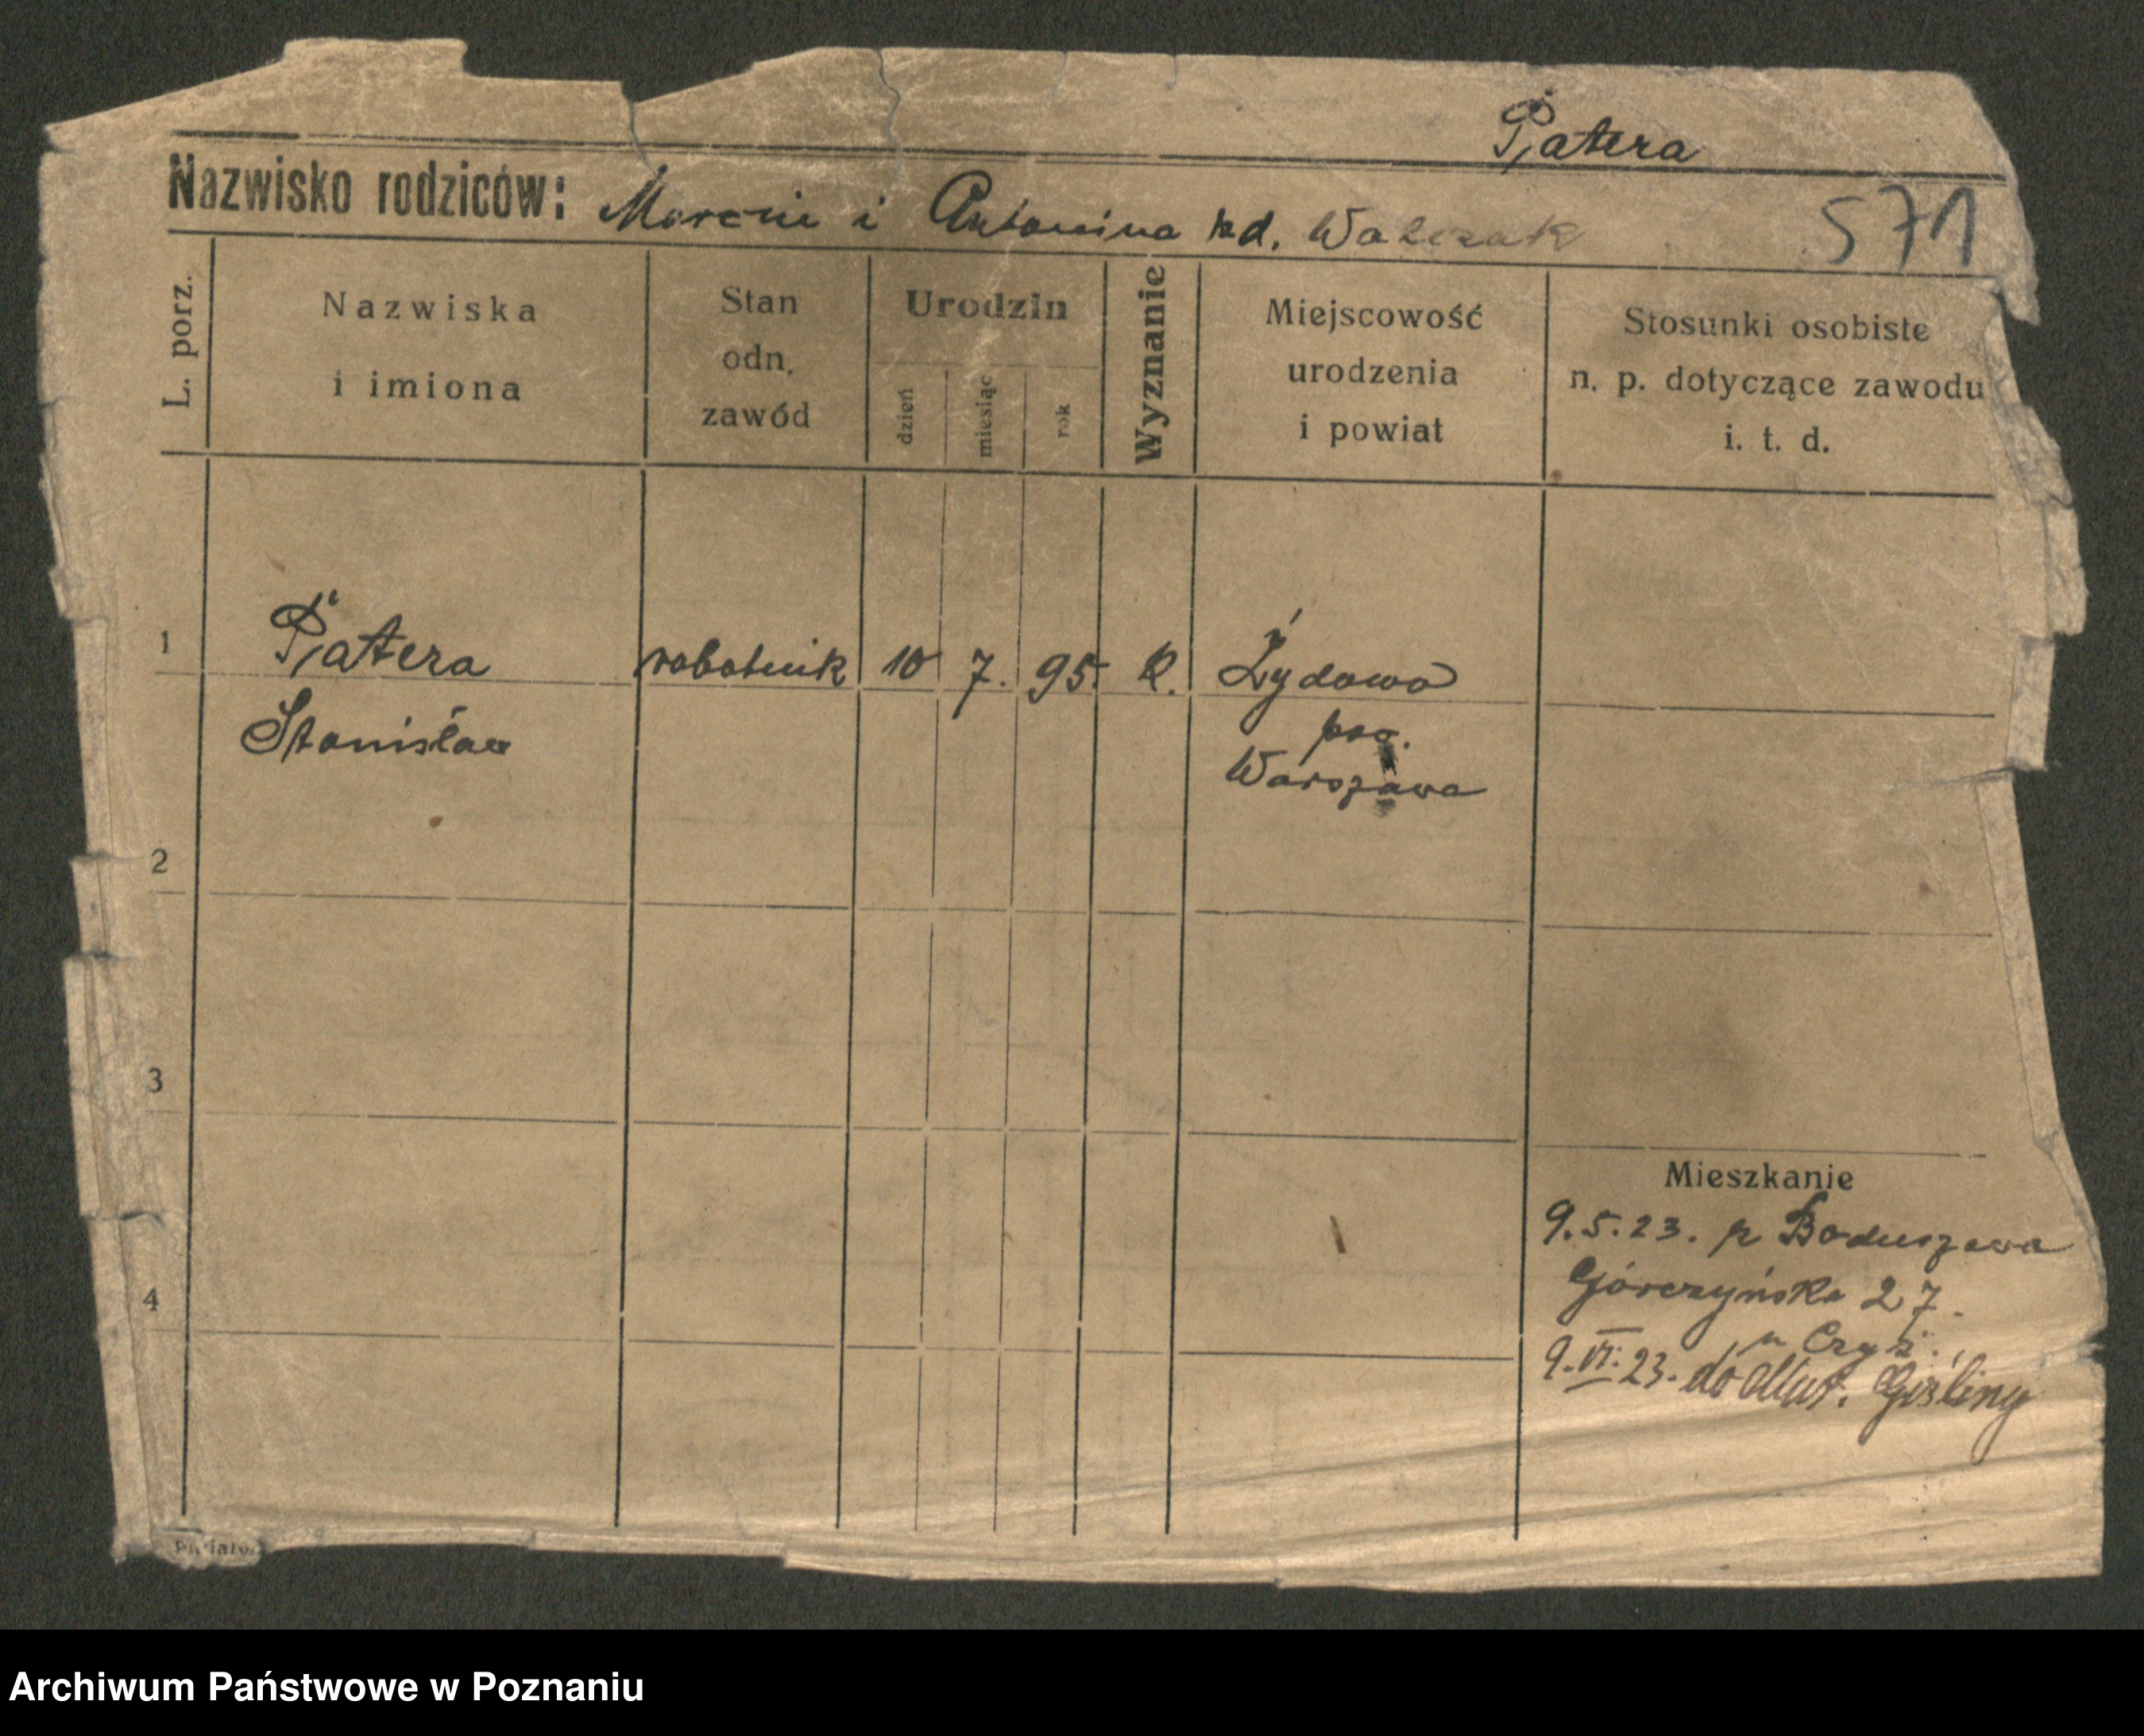 Patera
Nazwisko rodziców: Marcin i Antonina zd. Walczak 571
L. porz.
Nazwiska
i imiona
Stan
odn.
zawód
Urodzin
dzień
miesiąc
rok
Wyznanie
Miejscowość
urodzenia
i powiat
Stosunki osobiste
n. p. dotyczące zawodu
i. t. d.
1 Patera robotnik 10 7. 95. k. Żydowo
Stanisław pow.
Warszawa
2
3
Mieszkanie
9.5.23.
Górczyńska 27.
4
9.VI.23. do Mat.
Archiwum Państwowe w Poznaniu